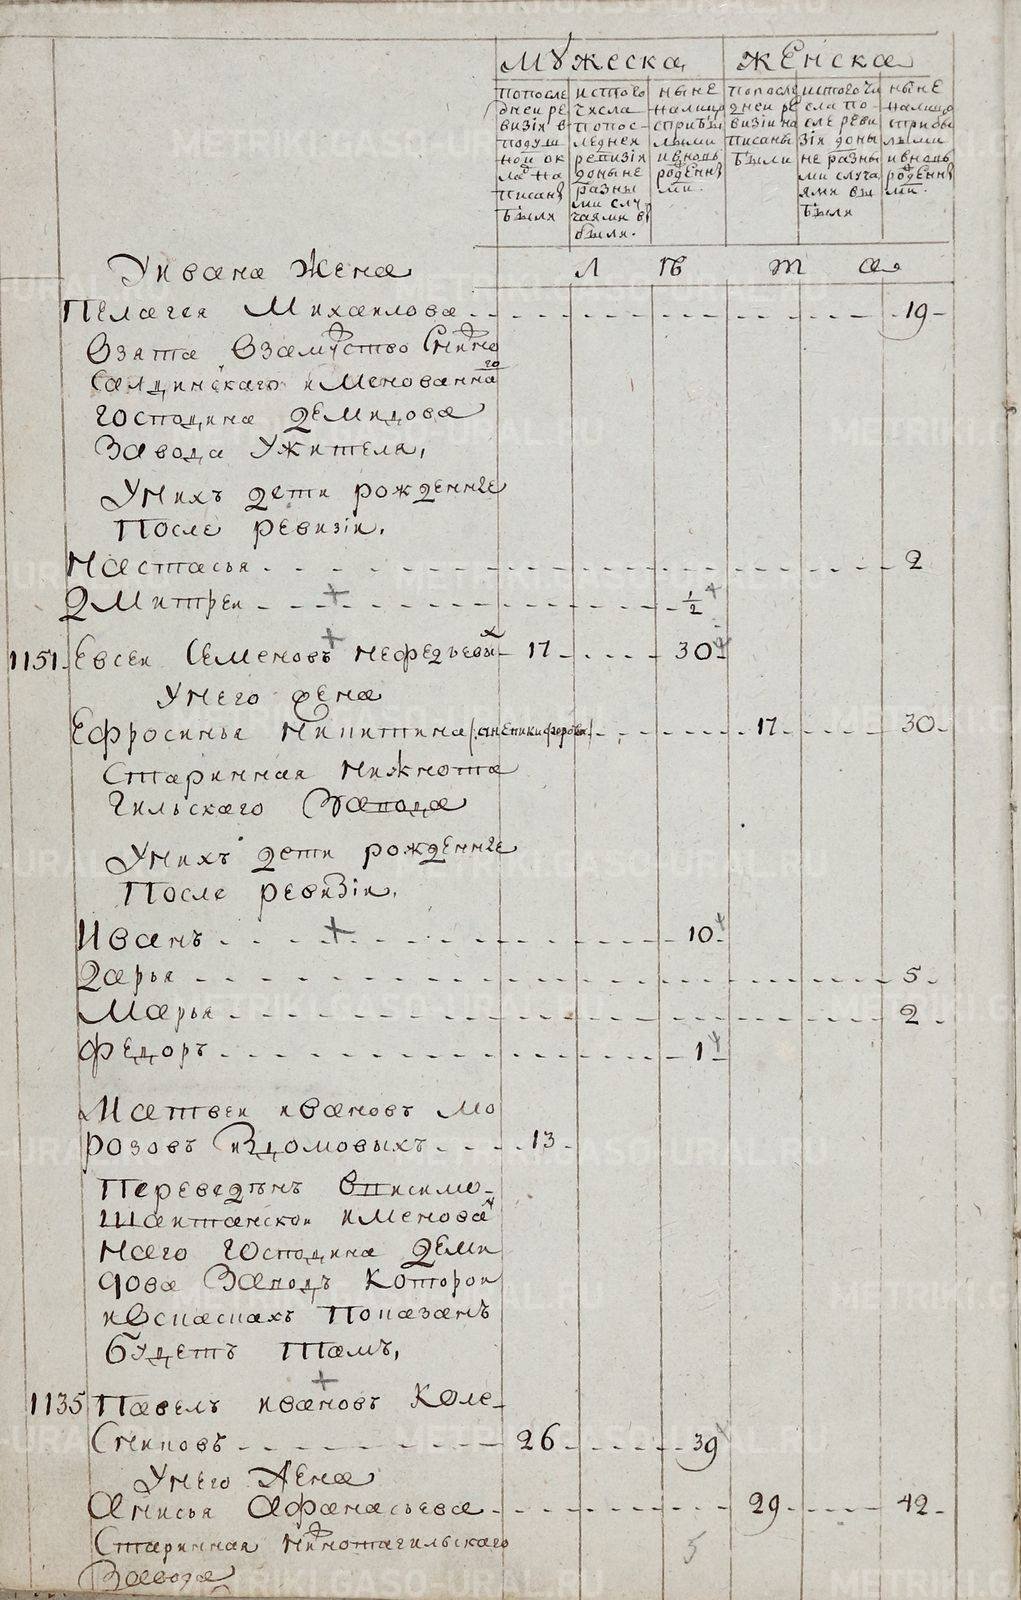 Мужеска Женска
попосле дней ревизiи в подушной окладъ написаны были
истого числа попос-леднея ревизiя доныне разны ми случаями выбыли.
ныне налицо сприбылыми ивновь рожденны ми.
попосле дней ре визiи на писаны были
истого числа по-сле ревизiя доны не разны ми случа ями вы были
ныне налицо сприбылыми ивновь рожденны ми.
Уивана Жена
Л ѣ т а
Пелагея Михаилова 19
Взята Взамужство Снижно
салдинскаго имянованнаго
господина демидова
Завода Ужителя,
Унихъ дети рожденные
После ревизiи.
Настасья 2
Дмитреи 1/2
1151 Евсеи Семеновъ Нефедьевых 17 30
Унего жена
Ефросинья Никитина (онеже Никифорова) 17 30
Старинная Нижнота
гильскаго Завода
Унихъ дети рожденные
После ревизiи.
Иванъ 10
Дарья 5
Марья 2
Федоръ 1
Матвеи ивановъ Мо
розовъ издомовыхъ 13
Переведенъ Вписимо-
Шаитанскои именован
наго господина Деми
дова Заводъ Которои
ивсказкахъ Показанъ
будетъ тамъ,
1135 Павелъ ивановъ Коле-
сниковъ 26 39
Унего Жена
Анисья Афанасьева 29 42
Старинная Нижнотагильскаго
Завода
5
METRIKI.GASO-URAL.RU